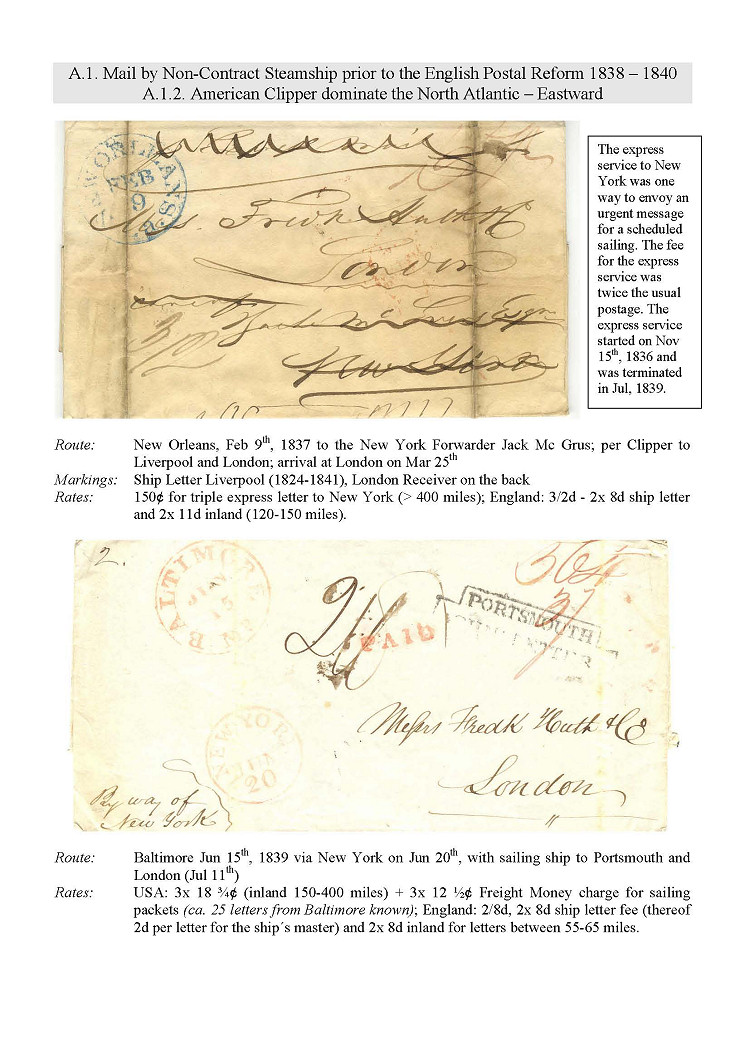 A.1. Mail by Non-Contract Steamship prior to the English Postal Reform 1838 – 1840
A.1.2. American Clipper dominate the North Atlantic – Eastward
ORLEANS
FEB
9
Fredk
London
New York
The express
service to New
York was one
way to envoy an
urgent message
for a scheduled
sailing. The fee
for the express
service was
twice the usual
postage. The
express service
started on Nov
15th, 1836 and
was terminated
in Jul, 1839.
Route: New Orleans, Feb 9th, 1837 to the New York Forwarder Jack Mc Grus; per Clipper to
Liverpool and London; arrival at London on Mar 25th
Markings: Ship Letter Liverpool (1824-1841), London Receiver on the back
Rates: 150¢ for triple express letter to New York (> 400 miles); England: 3/2d - 2x 8d ship letter
and 2x 11d inland (120-150 miles).
2.
BALTIMORE
15
PAID
PORTSMOUTH
SHIP LETTER
NEW-YORK
JUN
20
Messrs Fredk Huth & Co
London
By way of
New York
Route: Baltimore Jun 15th, 1839 via New York on Jun 20th, with sailing ship to Portsmouth and
London (Jul 11th)
Rates: USA: 3x 18 ¾¢ (inland 150-400 miles) + 3x 12 ½¢ Freight Money charge for sailing
packets (ca. 25 letters from Baltimore known); England: 2/8d, 2x 8d ship letter fee (thereof
2d per letter for the ship´s master) and 2x 8d inland for letters between 55-65 miles.